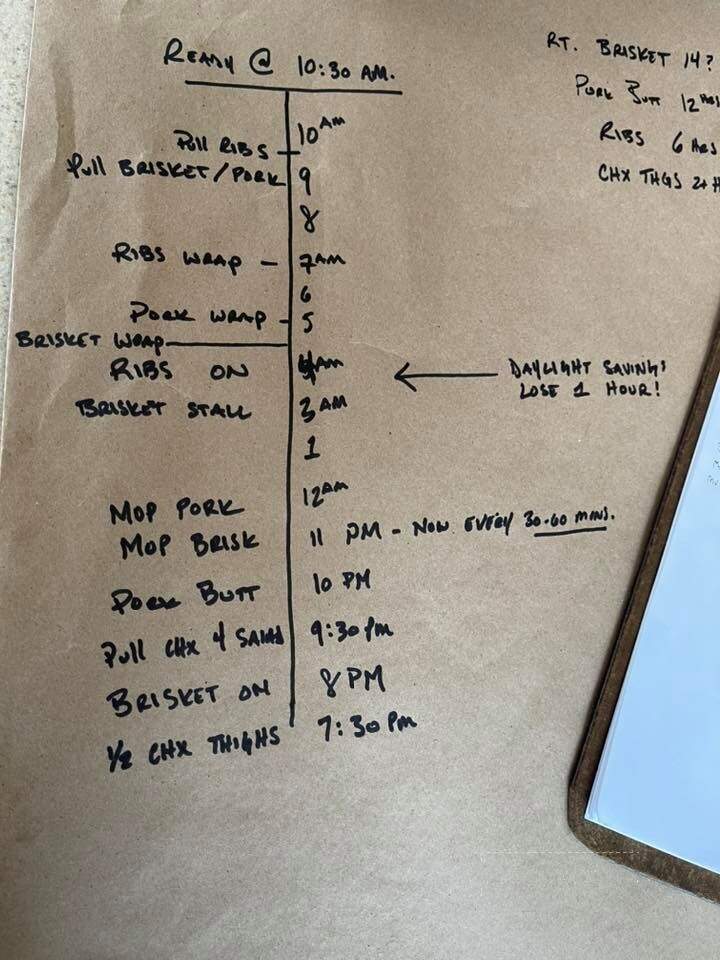 READY @ 10:30 AM.
RT. BRISKET 14?
PORK BUTT 12 HRS
RIBS 6 HRS
CHX THGS 2+ H
10 AM
PULL RIBS -
PULL BRISKET/PORK 9
8
RIBS WRAP - 7AM
6
PORK WRAP - 5
BRISKET WRAP
RIBS ON 4AM
DAYLIGHT SAVINGS
LOSE 1 HOUR!
BRISKET STALL 3 AM
1
MOP PORK 12AM
MOP BRISK 11 PM - NOW EVERY 30-60 MINS.
PORK BUTT 10 PM
PULL CHX 4 SALAD 9:30 PM
BRISKET ON 8 PM
1/2 CHX THIGHS 7:30 PM